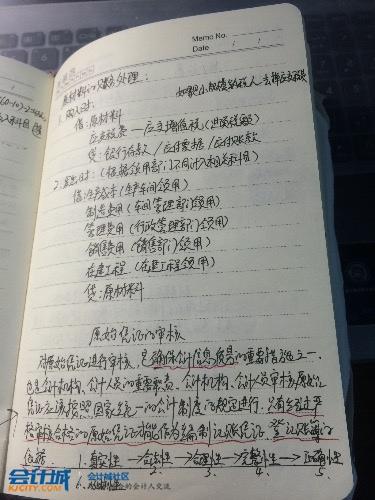 Memo No.
Date / /
原材料的账务处理:
1. 购入时: 如果小规模纳税人,去掉应交税费
借:原材料
应交税费—应交增值税(进项税额)
贷:银行存款/应付票据/应付账款
2. 发出时:(根据领用部门不同计入相关科目)
借:生产成本(生产车间领用)
制造费用(车间管理部门领用)
管理费用(行政管理部门领用)
销售费用(销售部门领用)
在建工程(在建工程领用)
贷:原材料
原始凭证的审核
对原始凭证进行审核,是确保会计信息质量的重要措施之一,
也是会计机构、会计人员的重要职责。会计机构、会计人员审核原始凭
证应该按照国家统一的会计制度的规定进行,只有经过
审核合格的原始凭证才能作为编制记账凭证、登记账簿的
依据 1.真实性→合法性→合理性→完整性→正确性
2. 3. 4. 5.
6.
会计城
KJCITY.COM
会计城社区
的会计人交流